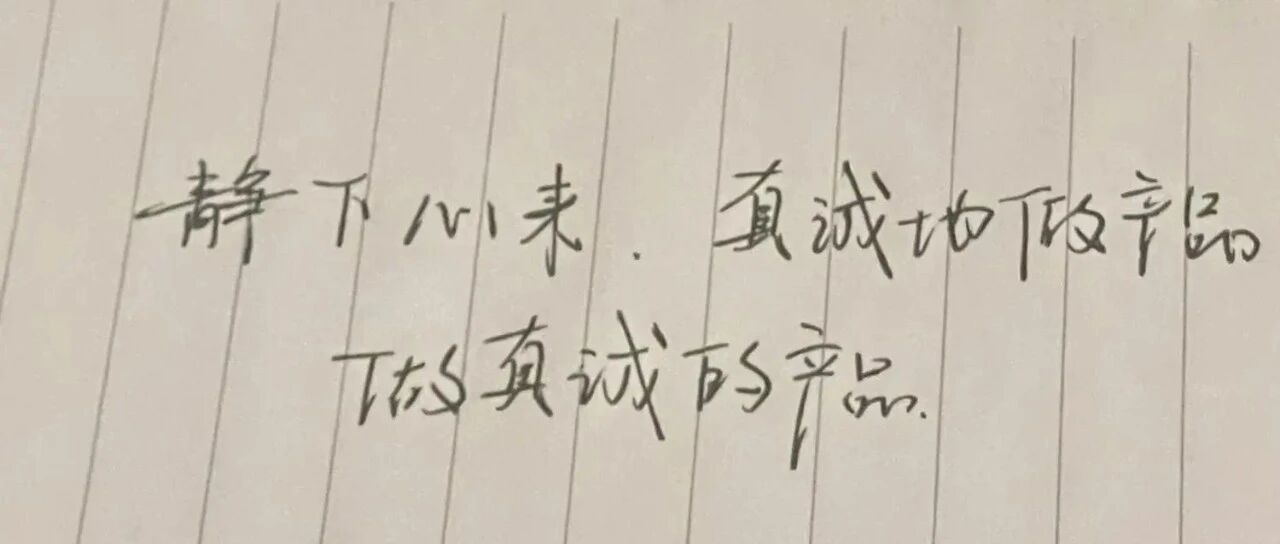 静下心来.真诚地做产品
做真诚的产品.